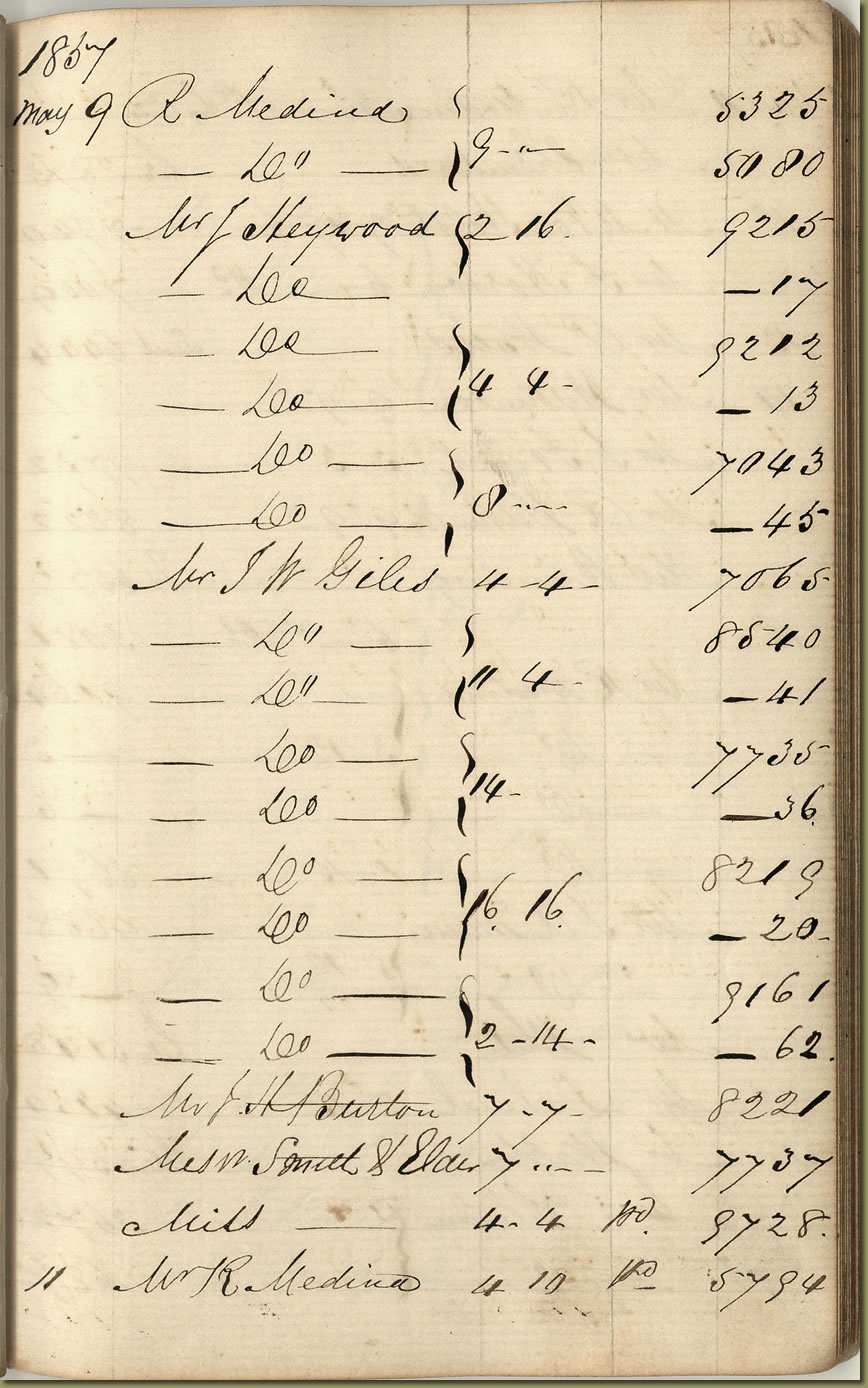 1857
May 9 R Medina 9 - " - 5325
— Do — 5080
Mr J Heywood 2 16. 9215
— Do — 17
— Do 9212
— Do — 13
— Do — 7043
— Do — 8 - - - — 45
Mr J W Giles 4 - 4 - 7065
— Do — 8540
— Do — 11 4 - — 41
— Do — 7735
— Do — 14 - — 36.
— Do — 8219
— Do — 16. 16. — 20 -
— Do — 9161
— Do — 2 - 14 - — 62.
Mr J. H Burton 7 - 7 - 8221
Messrs. Smith & Elder 7 " - - 7737
Mills — 4 - 4 pd. 9728.
11 Mr R Medina 4 10 pd 5794